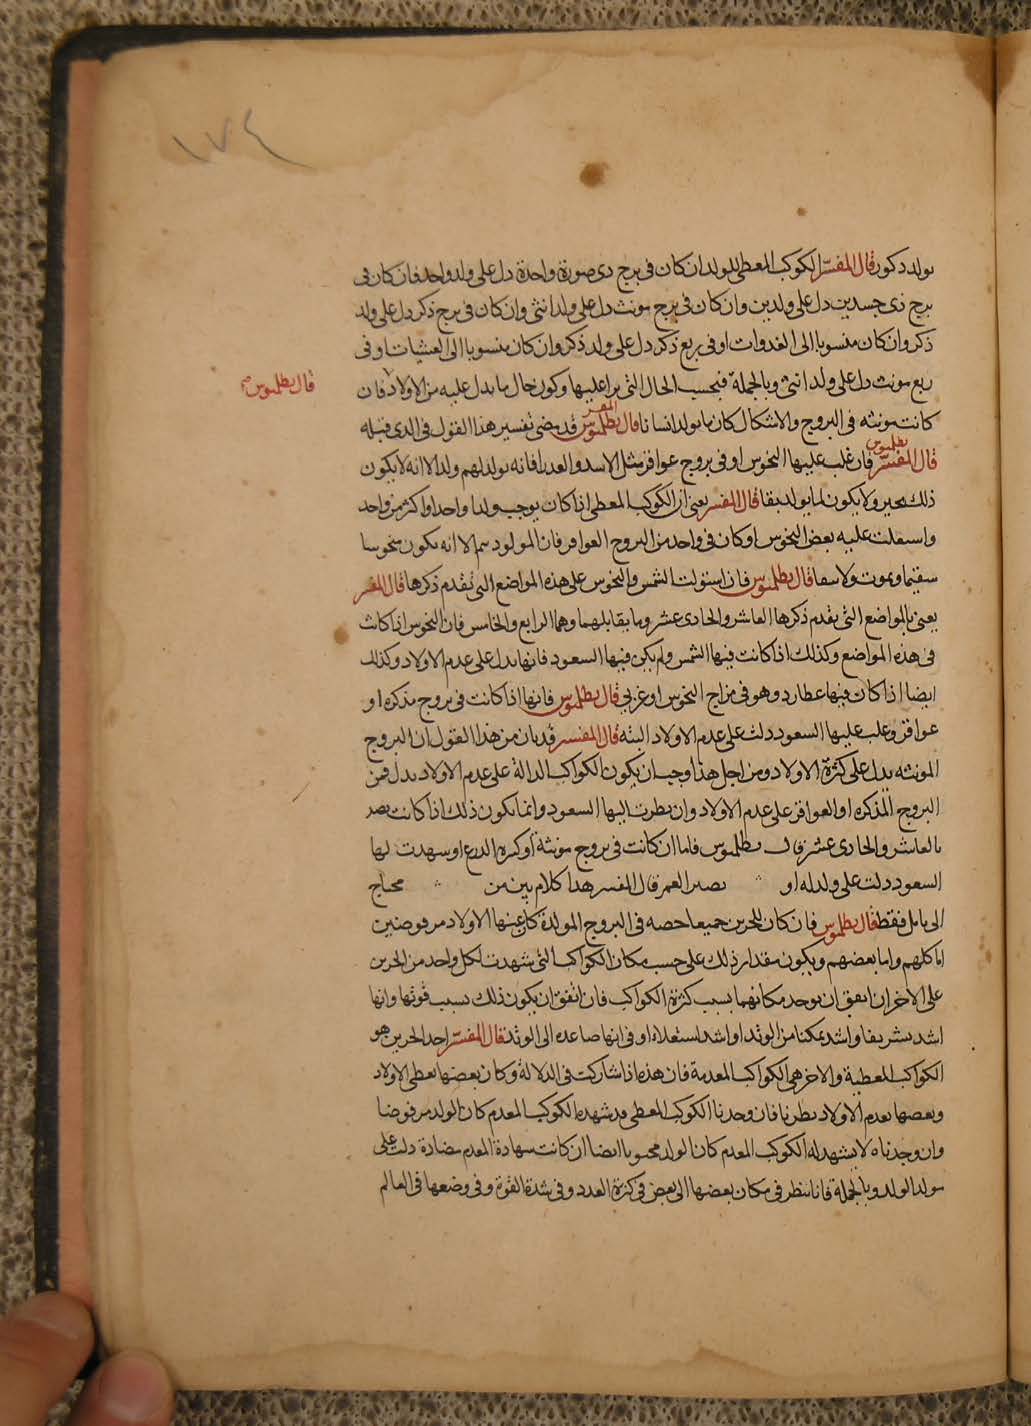 ١٧٤
يولد ذكور قال المفسر الكوكب المعطى للولد ان كان فى برج ذى صورة واحدة دل على ولد واحد فان كان فى
برج ذى جسدين دل على ولدين وان كان فى برج مونث دل على ولد انثى وان كان فى برج ذكر دل على ولد
ذكر وان كان منسوبا الى الغدوات او فى ربع ذكر دل على ولد ذكر وان كان منسوبا الى العشيات او فى
ربع مونث دل على ولد انثى وبالجملة فبحسب الحال التى يرا عليها وكون حال ما يدل عليه من الاولاد فان
قال بطلميوس
كانت مونثه فى البروج والاشكال كان ما يولد اناثا قال بطلميوس قد مضى تفسير هذا القول فى الذى قبله
المفسر
بطلميوس
قال المفسر فان غلب عليها النحوس او فى بروج عواقر مثل الاسد والعذرا فانه يولد لهم ولد الا انه لا يكون
ذلك بخير ولا يكون لما يولد بقا قال المفسر يعنى ان الكوكب المعطى اذا كان يوجب ولدا واحدا او اكثر من واحد
واستعلت عليه بعض النحوس او كان فى واحد من البروج العواقر فان المولود يتم الا انه يكون منحوسا
سقيما ويموت ولا يبقا قال بطلميوس فان استولت الشمس والنحوس على هذه المواضع التى تقدم ذكرها قال المفسر
يعنى بالمواضع التى يقدم ذكرها العاشر والحادى عشر وما يقابلهما وهما الرابع والخامس فان النحوس اذا كانت
فى هذه المواضع وكذلك اذا كانت فيها الشمس ولم يكن فيها السعود فانها يدل على عدم الاولاد وكذلك
ايضا اذا كان فيها عطارد وهو فى مزاج النحوس او غربى قال بطلميوس فانها اذا كانت فى بروج مذكره او
عواقر وغلب عليها السعود دلت على عدم الاولاد البته قال المفسر قد بان من هذا القول ان البروج
المونثه يدل على كثرة الاولاد ومن اجل هذا وجب ان يكون الكواكب الدالة على عدم الاولاد يدل فى
البروج المذكره او العواقر على عدم الاولاد وان نظرت اليها السعود وانما يكون ذلك اذا كانت
بالعاشر والحادى عشر قال بطلميوس فاما ان كانت فى بروج مونثة او كثيره الزرع او شهدت لها
السعود دلت على ولد له او قصير العمر قال المفسر هذا كلام بين من محتاج
الى تامل فقط قال بطلميوس فان كان للحزبين جميعا حصه فى البروج المولدة كان عنها الاولاد مرفوضين
اما كلهم واما بعضهم ويكون مقدار ذلك على حسب مكان الكواكب التى شهدت لكل واحد من الحزبين
على الاخر ان اتفق ان يوجد مكانهما بسبب كثرة الكواكب فان اتفق ان يكون ذلك بسبب قوتها وانها
اشد تشريقا واشد تمكنا من الوتد او اشد استعلاء او فى انها صاعده الى الوتد قال المفسر احد الحزبين هو
الكواكب المعطية والاخر هى الكواكب المعدمة فان هذه اذا شاركت فى الدلالة وكان بعضها يعطى الاولاد
وبعضها يعدم الاولاد نظرنا فان وجدنا الكوكب المعطى قد شهده الكوكب المعدم كان الولد مرفوضا
وان وجدناه لا يشهد له الكوكب المعدم كان الولد محبوبا ايضا ان كانت شهادة المعدم مضادة دلت على
الولد وبالجملة فانا ننظر فى مكان بعضها الى بعض فى كثرة العدد وفى شدة القوة وفى وضعها فى العالم